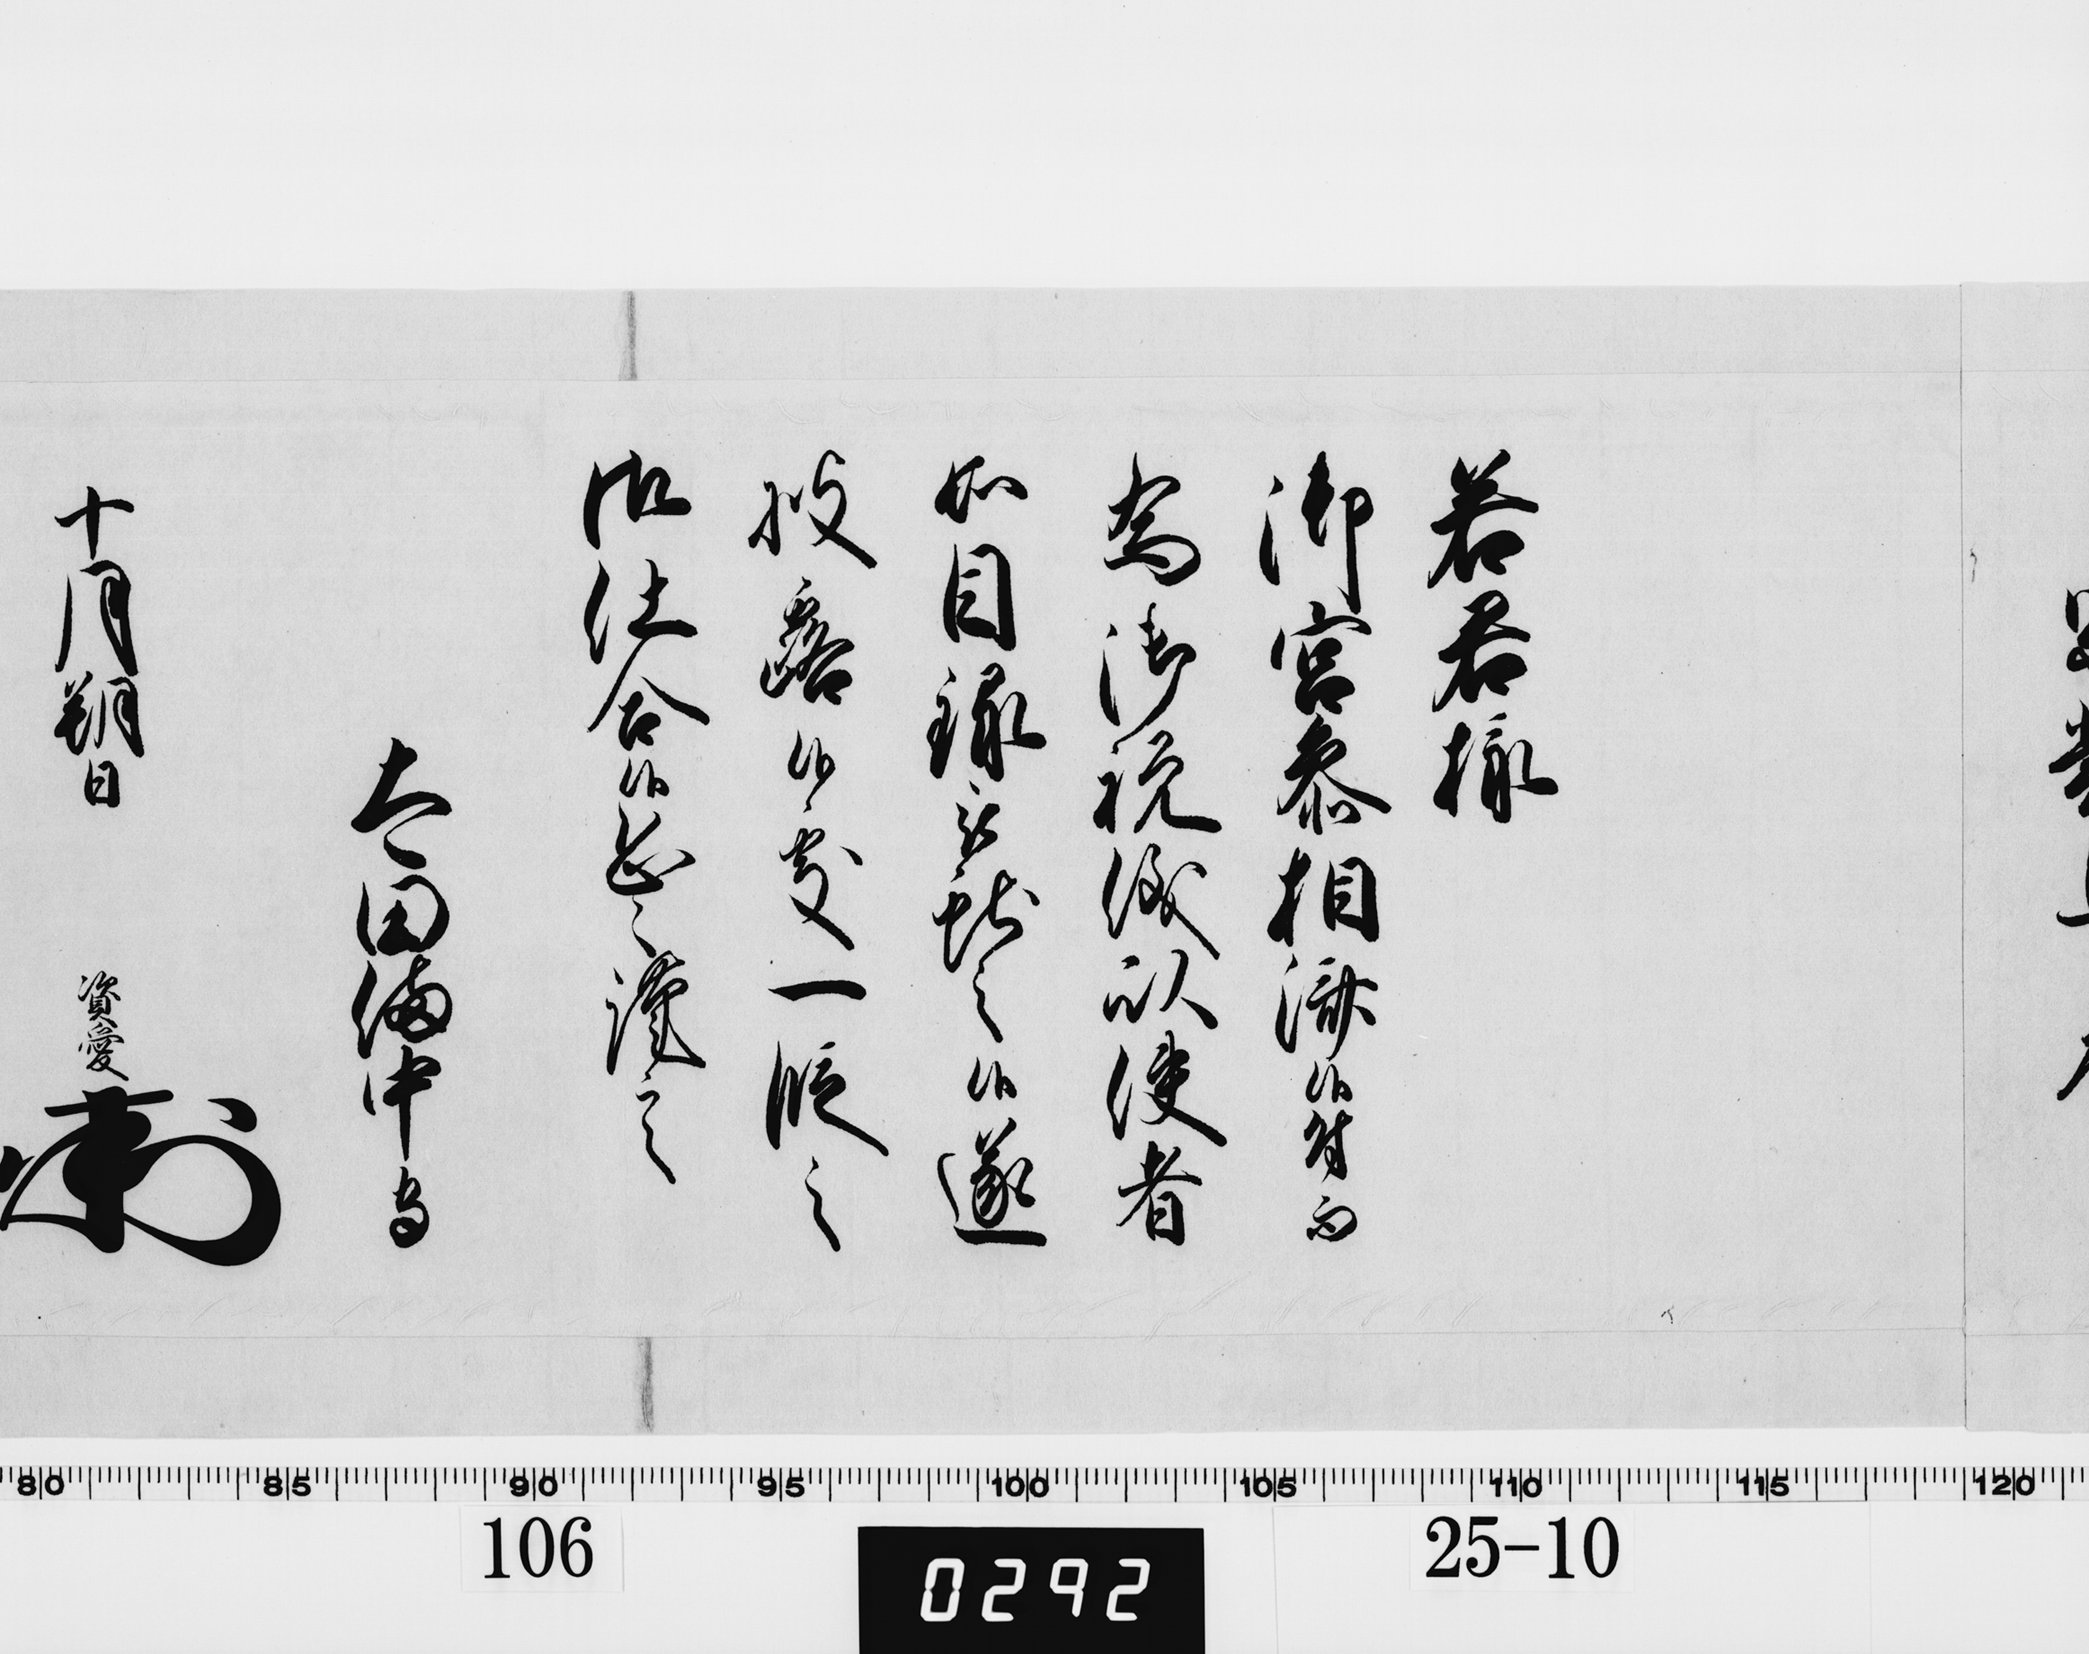 若君様
御宮参相済候付而
為御祝儀以使者
如目録被献之候遂
披露候処一段之
御仕合候恐々謹言
太田備中守
十月朔日
資愛
80 85 90 95 100 105 110 115 120
106
25-10
0292